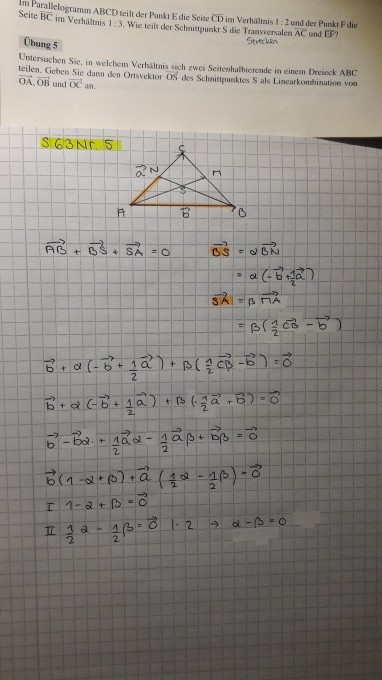 Im Parallelogramm ABCD teilt der Punkt E die Seite CD im Verhältnis 1 : 2 und der Punkt F die
Seite BC im Verhältnis 1 : 3. Wie teilt der Schnittpunkt S die Transversalen AC und EF?
Strecken
Übung 5
Untersuchen Sie, in welchem Verhältnis sich zwei Seitenhalbierende in einem Dreieck ABC
teilen. Geben Sie dann den Ortsvektor OS des Schnittpunktes S als Linearkombination von
OA, OB und OC an.
S 63 Nr. 5
C
a⃗ N M
S
A b⃗ B
AB⃗ + BS⃗ + SA⃗ = 0 BS⃗ = α BN⃗
= α (-b⃗ + 1/2 a⃗)
SA⃗ = β MA⃗
= β (1/2 CB⃗ - b⃗)
b⃗ + α (-b⃗ + 1/2 a⃗) + β (1/2 CB⃗ - b⃗) = 0⃗
b⃗ + α (-b⃗ + 1/2 a⃗) + β (-1/2 a⃗ + b⃗) = 0⃗
b⃗ - b⃗α + 1/2 a⃗ α - 1/2 a⃗ β + b⃗β = 0⃗
b⃗ (1 - α + β) + a⃗ (1/2 α - 1/2 β) = 0⃗
I 1 - α + β = 0⃗
II 1/2 α - 1/2 β = 0⃗ | · 2 → α - β = 0